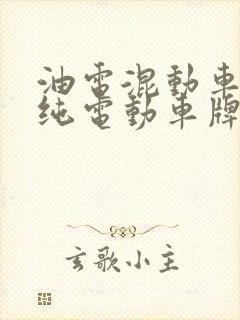 油電混動車
纯電動車牌
玄歌小主